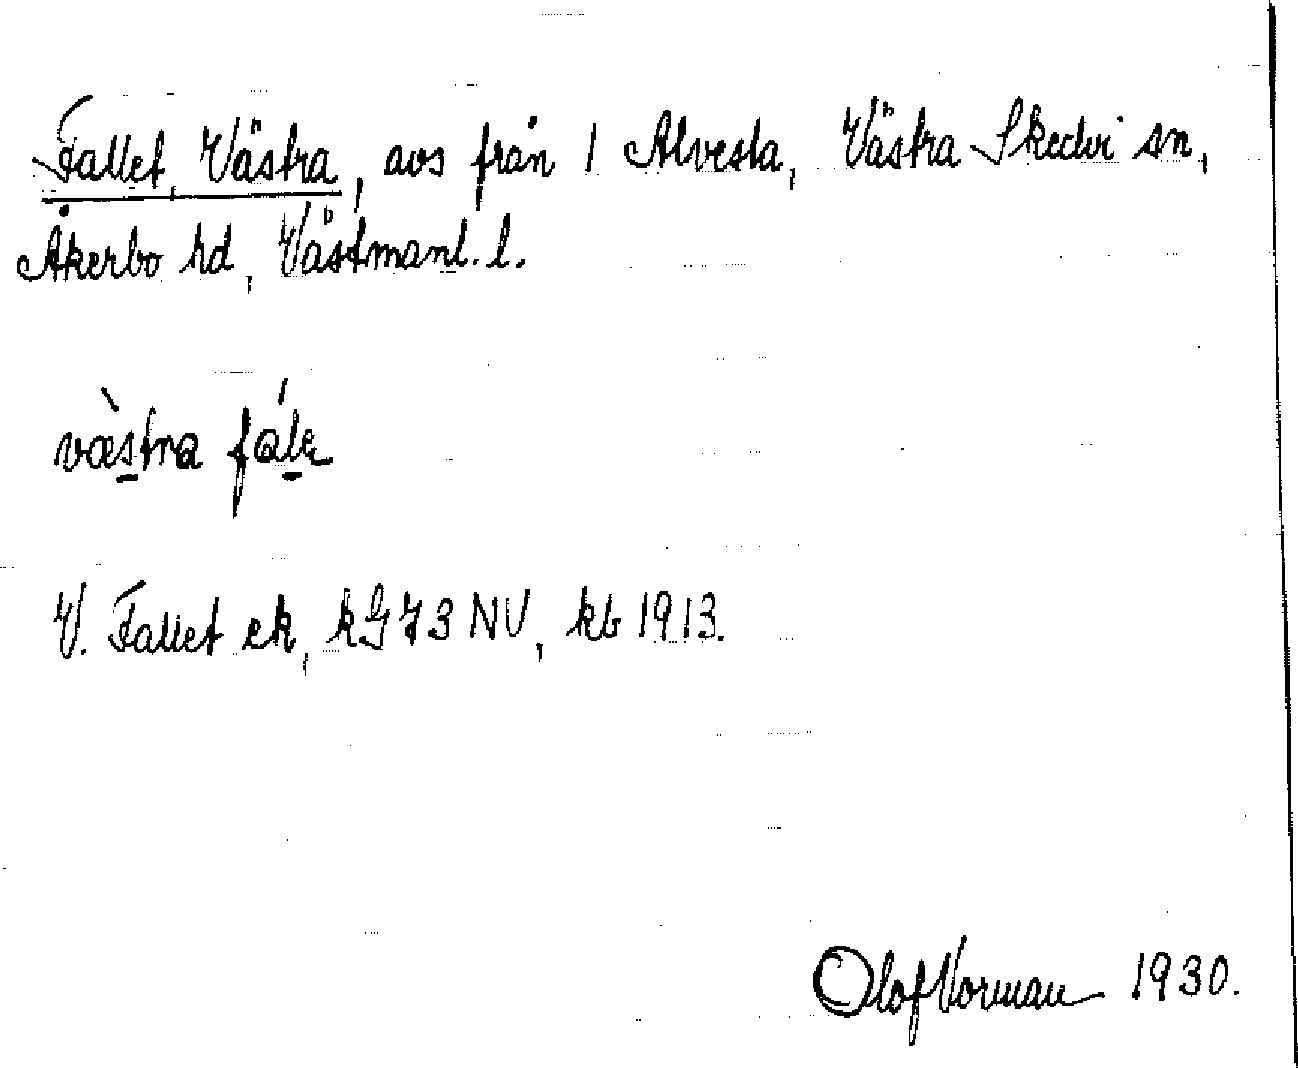 Fallet, Västra, avs från 1 Alvesta, Västra Skedvi sn,
Åkerbo hd, Västmanl. l.
væ̀stra fále
V. Fallet ek, kG73 NV, kb 1913.
Olof Vorman 1930.